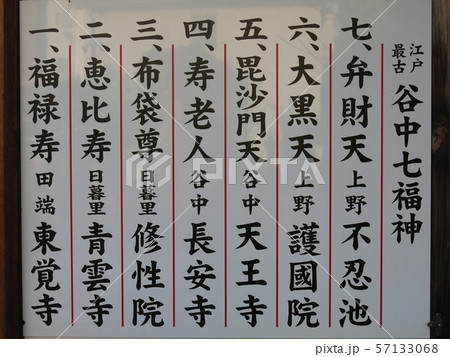 江戸最古 谷中七福神
七、弁財天 上野 不忍池
六、大黒天 上野 護國院
五、毘沙門天 谷中 天王寺
四、寿老人 谷中 長安寺
三、布袋尊 日暮里 修性院
二、恵比寿 日暮里 青雲寺
一、福禄寿 田端 東覚寺
PIXTA
pixta.jp - 57133068